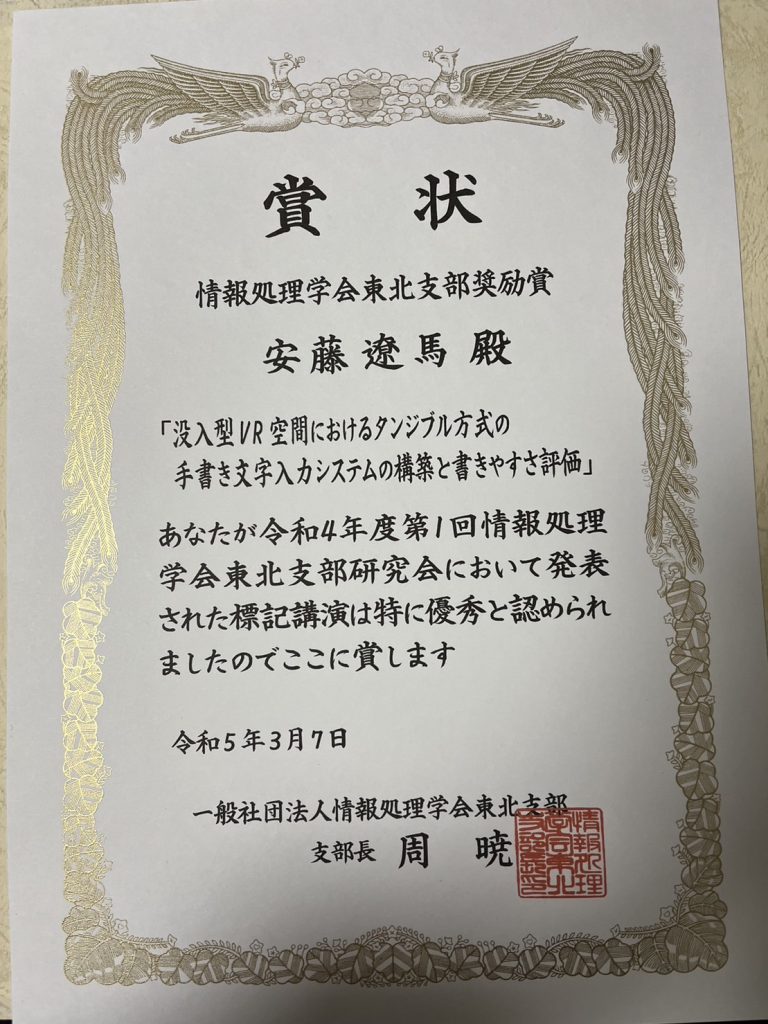 賞 状
情報処理学会東北支部奨励賞
安藤遼馬 殿
「没入型VR空間におけるタンジブル方式の
手書き文字入力システムの構築と書きやすさ評価」
あなたが令和4年度第1回情報処理
学会東北支部研究会において発表
された標記講演は特に優秀と認められ
ましたのでここに賞します
令和5年3月7日
一般社団法人情報処理学会東北支部
支部長 周 暁
情報処理
学会東北